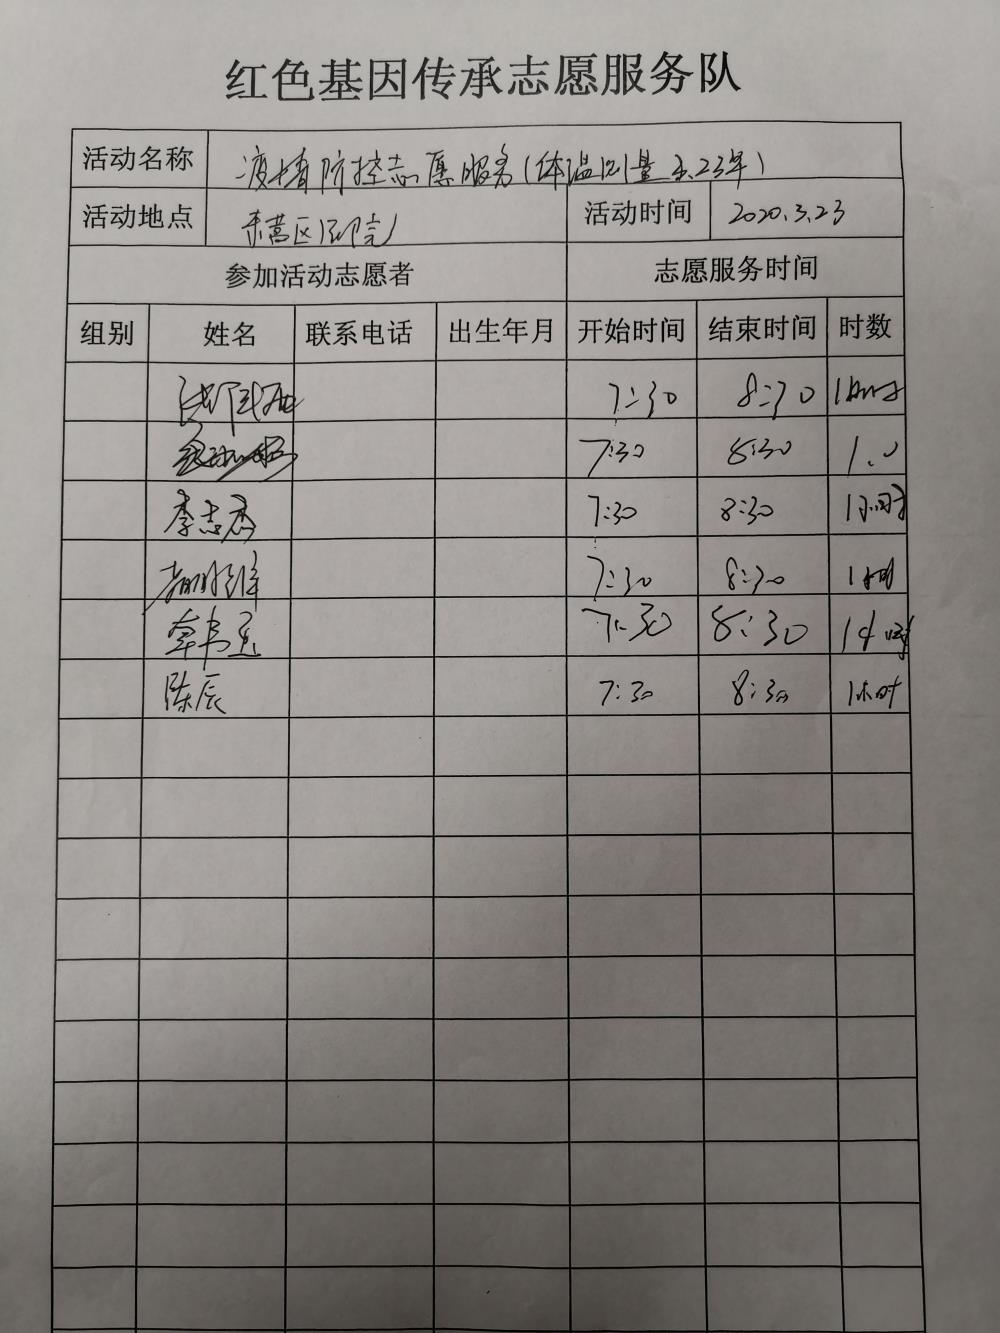 红色基因传承志愿服务队
活动名称 疫情防控志愿服务(体温测量 3.23早)
活动地点 活动时间 2020.3.23
参加活动志愿者 志愿服务时间
组别 姓名 联系电话 出生年月 开始时间 结束时间 时数
7:30 8:30 1小时
7:30 8:30 1.0
李志杰 7:30 8:30 1小时
7:30 8:30 1小时
7:30 8:30 1小时
陈辰 7:30 8:30 1小时